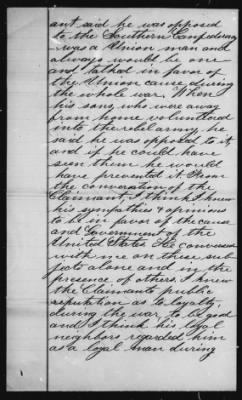 ant said he was opposed
to the Southern Confederacy
was a Union man and
always would be one
and talked in favor of
the Union cause during
the whole war. When
his sons, who were away
from home volunteered
into the rebel army he
said he was opposed to it,
and if he could have
seen them he would
have prevented it. From
the conversation of the
Claimant, I think I knew
his sympathies & opinions
to be in favor of the cause
and Government of the
United States. He conversed
with me on these sub-
jects alone and in the
presence of others. I knew
the Claimants public
reputation as to loyalty,
during the war, to be good
and I think his loyal
neighbors regarded him
as a loyal man during